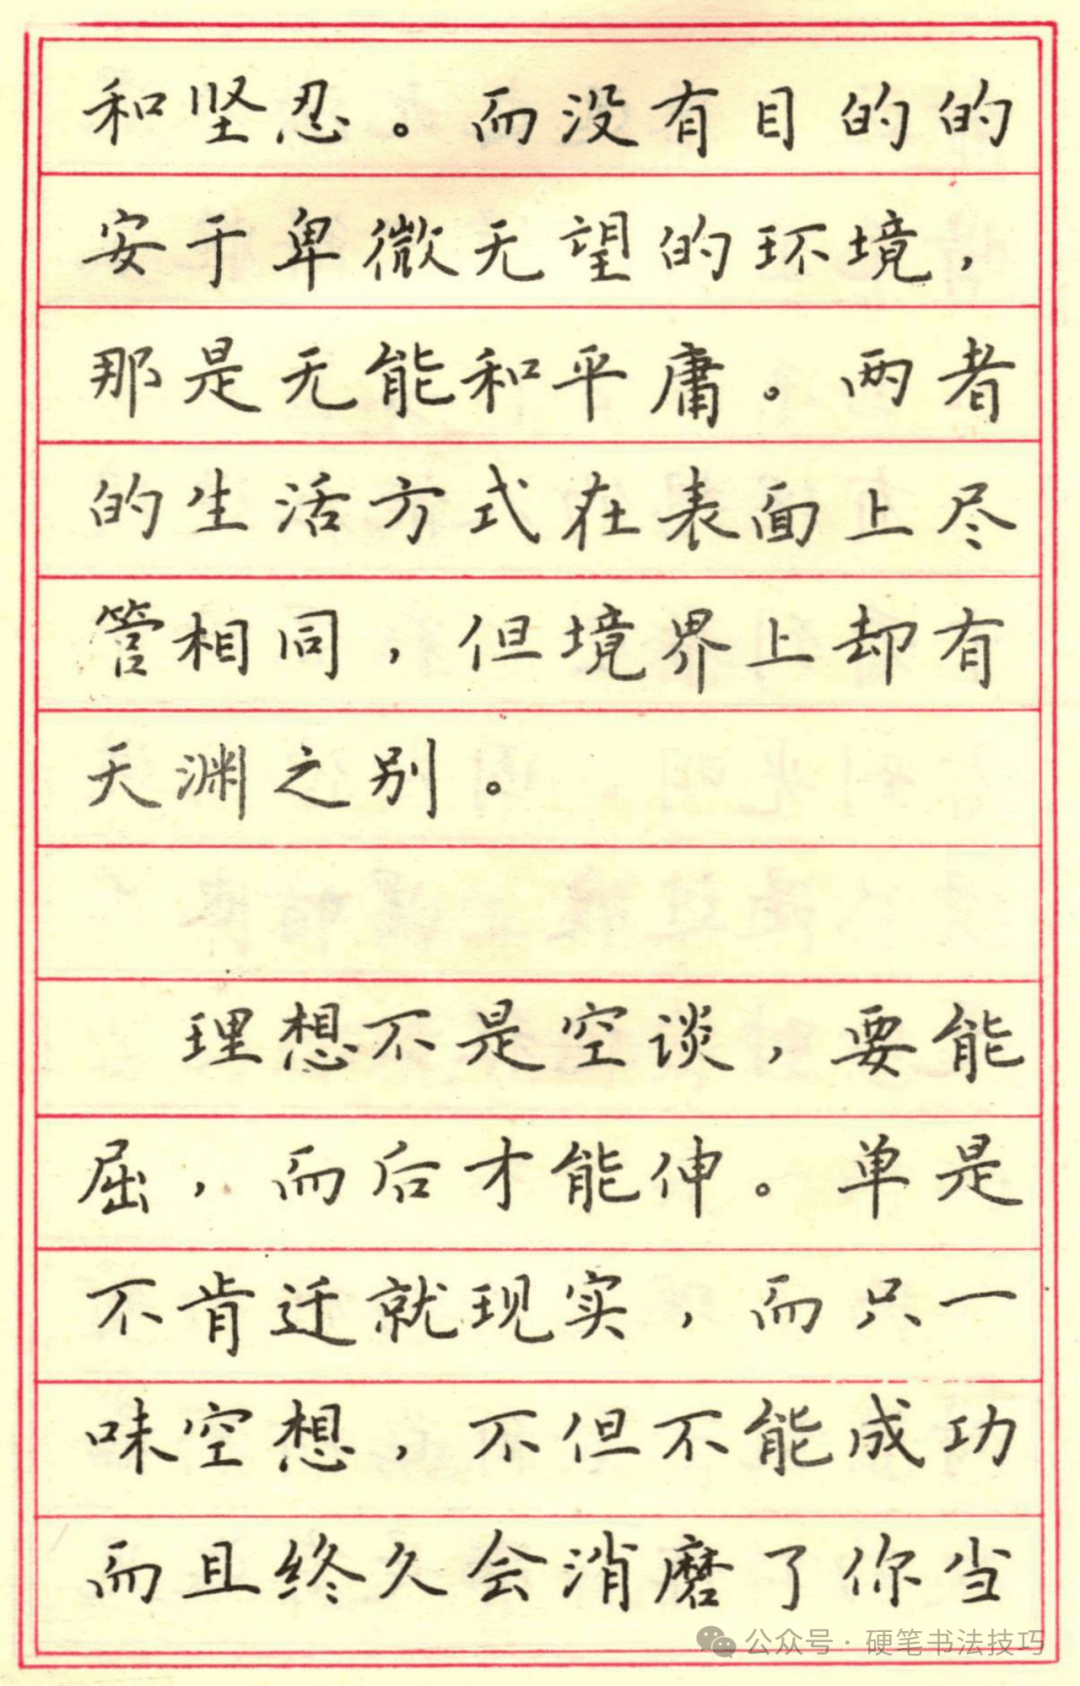 和坚忍。而没有目的的
安于卑微无望的环境，
那是无能和平庸。两者
的生活方式在表面上尽
管相同，但境界上却有
天渊之别。
理想不是空谈，要能
屈，而后才能伸。单是
不肯迁就现实，而只一
味空想，不但不能成功
而且终久会消磨了你当
公众号·硬笔书法技巧